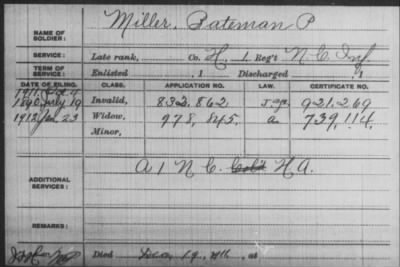 NAME OF SOLDIER: Miller, Bateman P
SERVICE: Late rank, Co. H, 1 Reg't N.C. Inf.
TERM OF SERVICE: Enlisted , 1 Discharged , 1
DATE OF FILING. CLASS. APPLICATION NO. LAW. CERTIFICATE NO.
1890 July 19 Invalid, 832,862 921,269
1912 Jan. 23 Widow, 978,845 a 739,114
Minor,
ADDITIONAL SERVICES: A 1 N. C. Col'd H A.
REMARKS:
Died Dec. 19, 1911, at